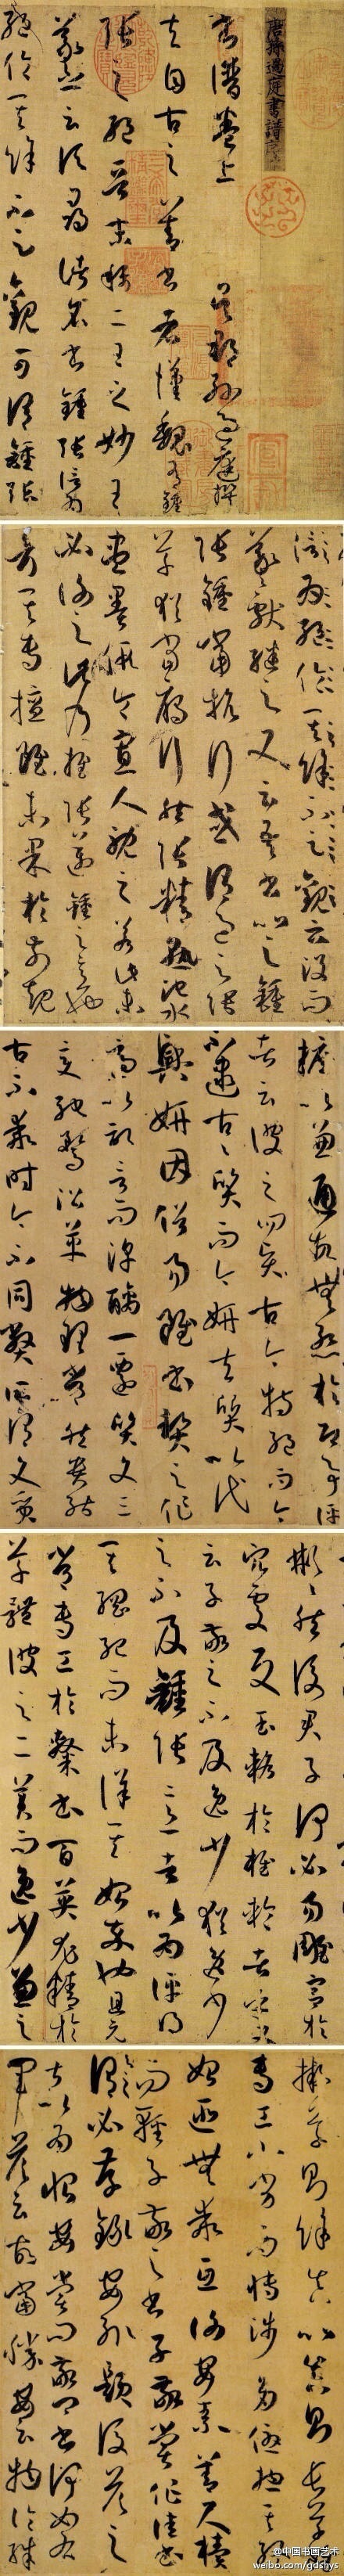 唐孫過庭書譜序
書譜卷上 吳郡孫過庭撰
夫自古之善書者漢魏有鍾
張之絕晉末稱二王之妙王
羲之云頃尋諸名書鍾張信為
絕倫其餘不足觀可謂鍾張
信為絕倫其餘不足觀云沒而
羲獻繼之又云吾書比之鍾
張鍾當抗行或謂過之張
草猶當鴈行然張精熟池水
盡墨假令寡人耽之若此未
必謝之此乃推張邁鍾之意也
考其專擅雖未果於前規
摭以兼通故無慚於即事評
者云彼之四賢古今特絕而今
不逮古古質而今妍夫質以代
興妍因俗易雖書契之作
適以記言而淳醨一遷質文三
變馳騖沿革物理常然貴能
古不乖時今不同弊所謂文質
彬彬然後君子何必易雕宮於
穴處反玉輅於椎輪者乎又
云子敬之不及逸少猶逸少
之不及鍾張意者以為評得
其綱紀而未詳其始卒也且元
常專工於隸書百英尤精於
草體彼之二美而逸少兼之
擬草則餘真比真則長草雖
專工小劣而博涉多優揔其終
始匪無乖互謝安素善尺牘
而輕子敬之書子敬嘗作佳書
與之謂必存錄安輒題後答之
甚以為恨安嘗問敬卿書何如右
軍答云故當勝安云物論殊
@中国书画艺术
weibo.com/gdshys